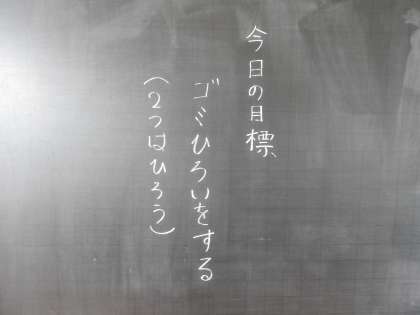 今日の目標
ゴミひろいをする
(2つはひろう)